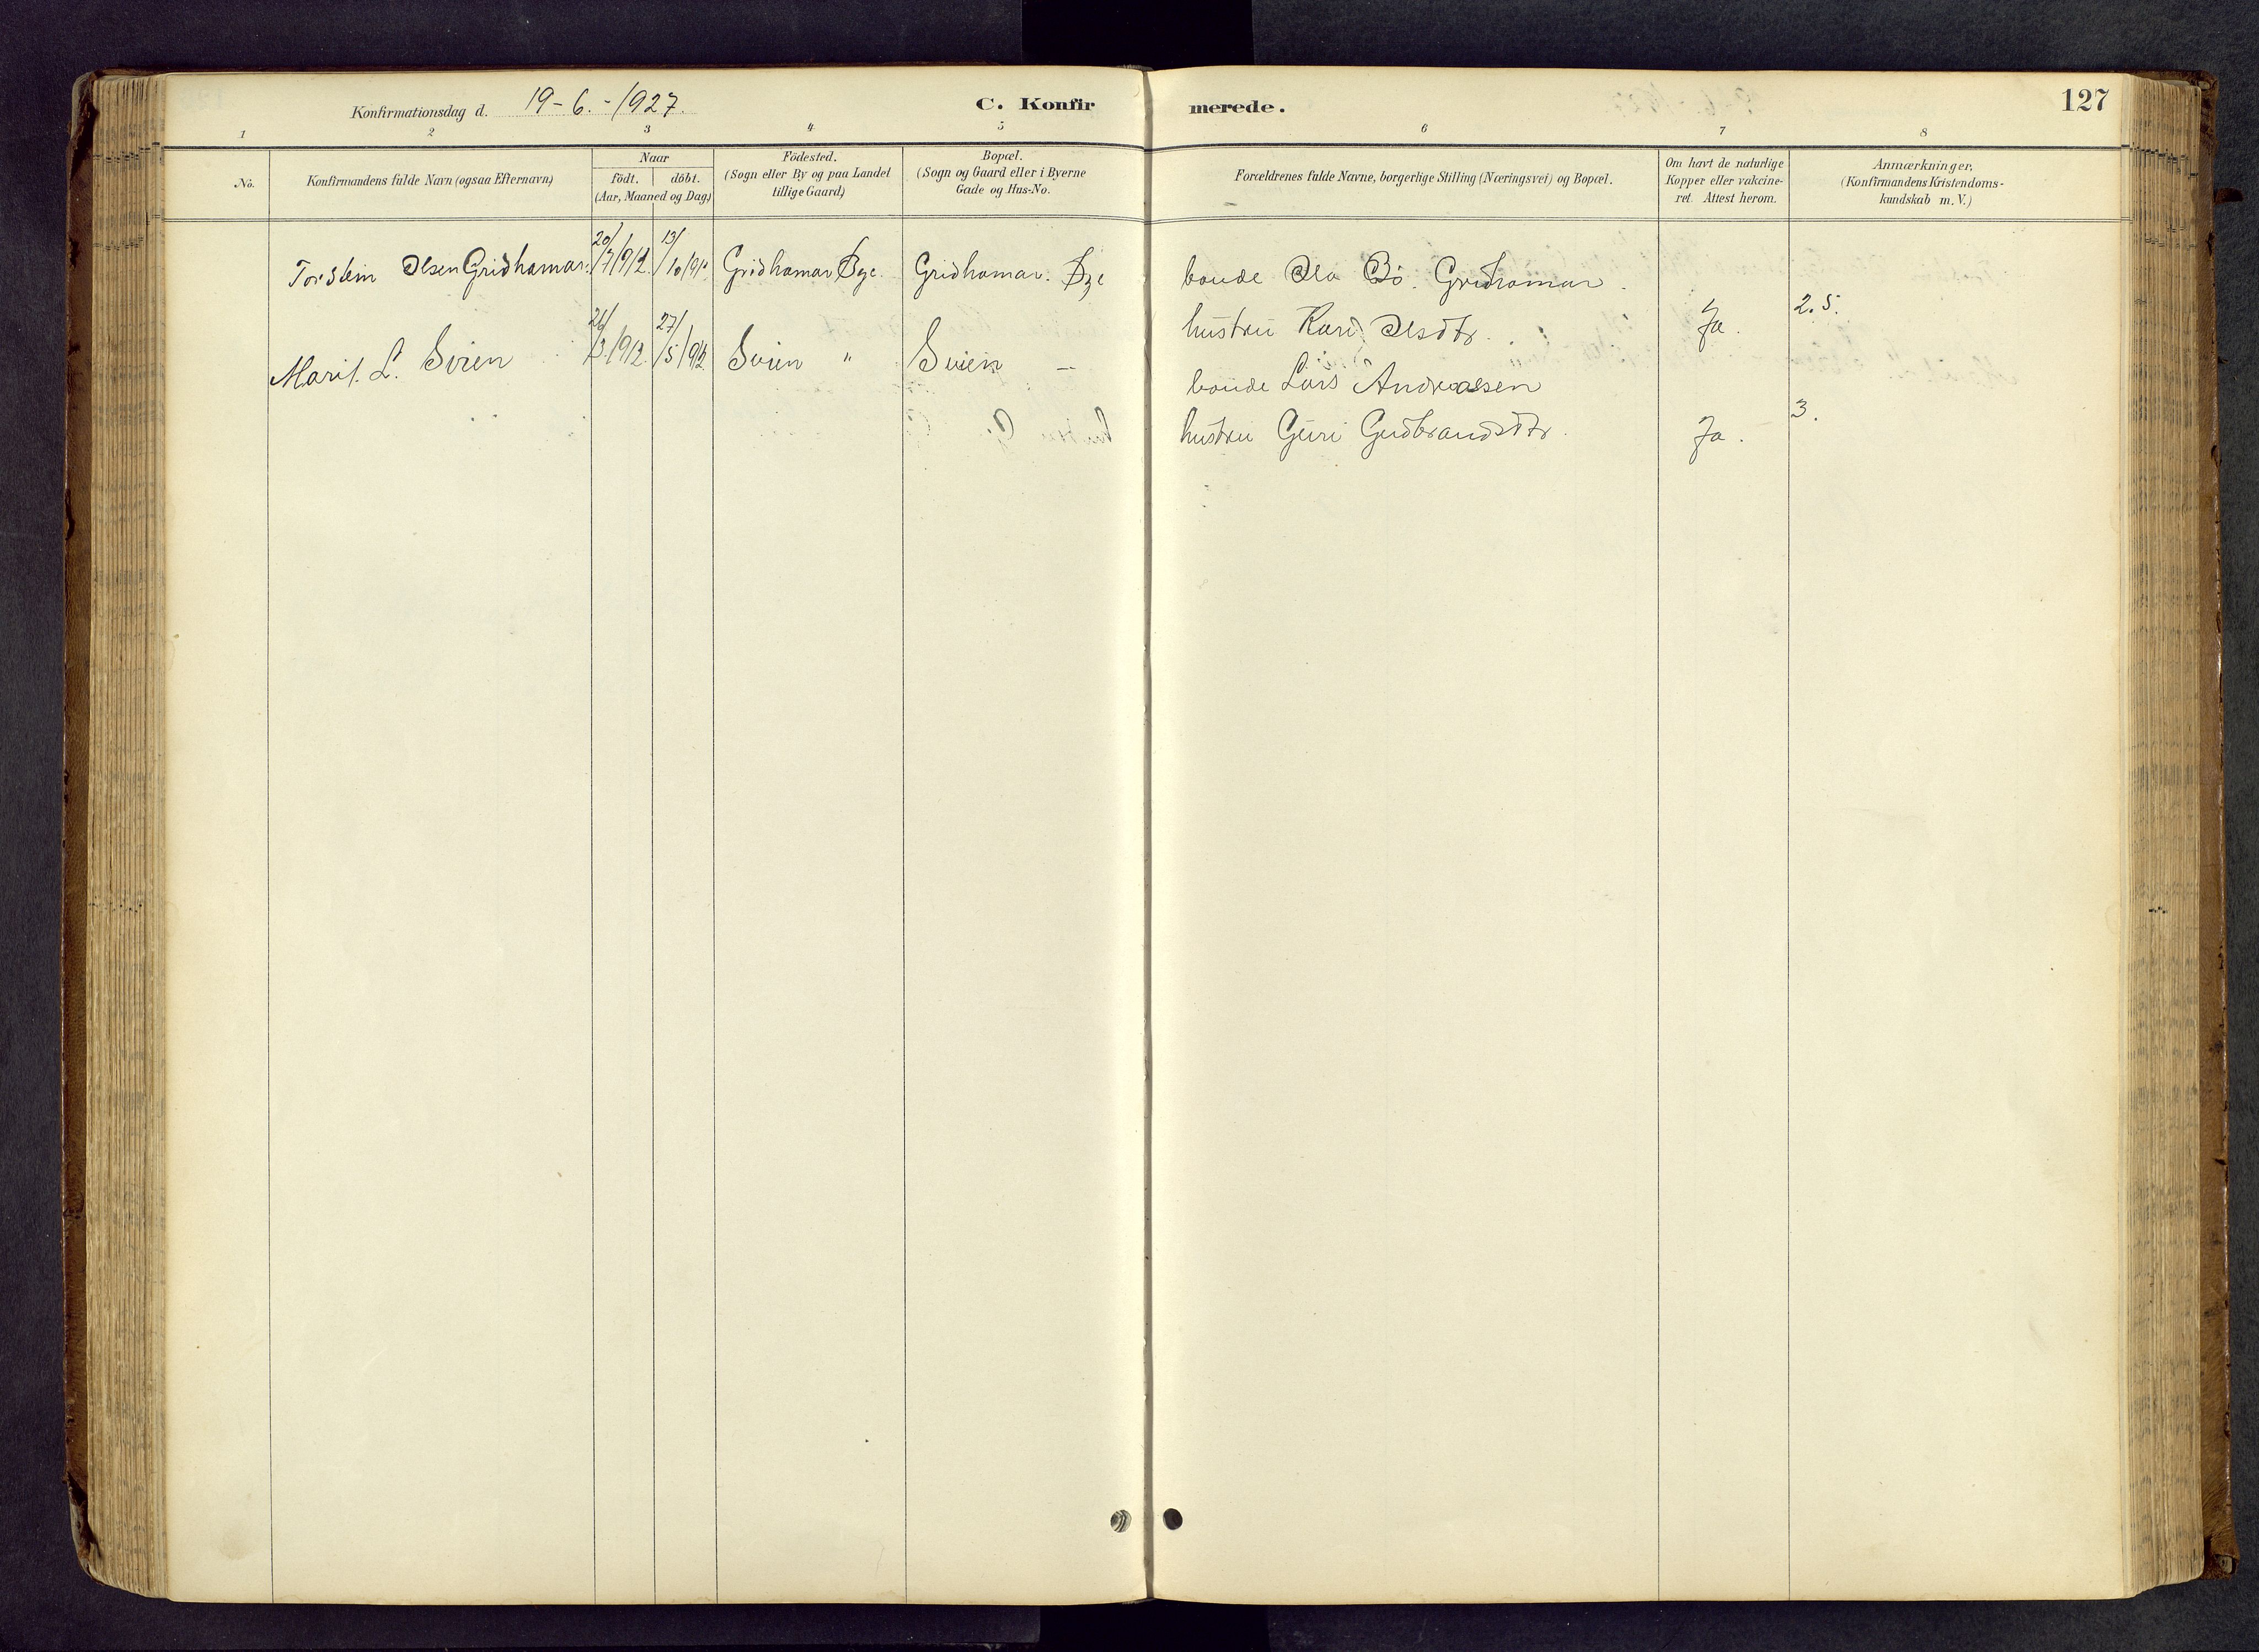 Konfirmationsdag d. 19-6.-1927.
C. Konfirmerede.
127
1 2 3 4 5 6 7 8
No.
Konfirmandens fulde Navn (ogsaa Efternavn)
Naar
födt. döbt.
(Aar, Maaned og Dag)
Födested.
(Sogn eller By og paa Landet
tillige Gaard)
Bopæl.
(Sogn og Gaard eller i Byerne
Gade og Hus-No.
Forældrenes fulde Navne, borgerlige Stilling (Næringsvei) og Bopæl.
Om havt de naturlige
Kopper eller vakcine-
ret. Attest herom.
Anmærkninger.
(Konfirmandens Kristendoms-
kundskab m.V.)
Torstein Olsen Gridhamar. 20/7 1912. 13/10 191 Gridhamar Øye. Gridhamar. Øye bonde Ola Bö. Gridhamar.
hustru Kari Olsdtr. Ja. 2.5.
Marit. L. Svien 26/3 1912. 27/5 1912 Svien " Svien – bonde Lars Andreassen
hustru Guri Gudbrandsdtr. Ja. 3.